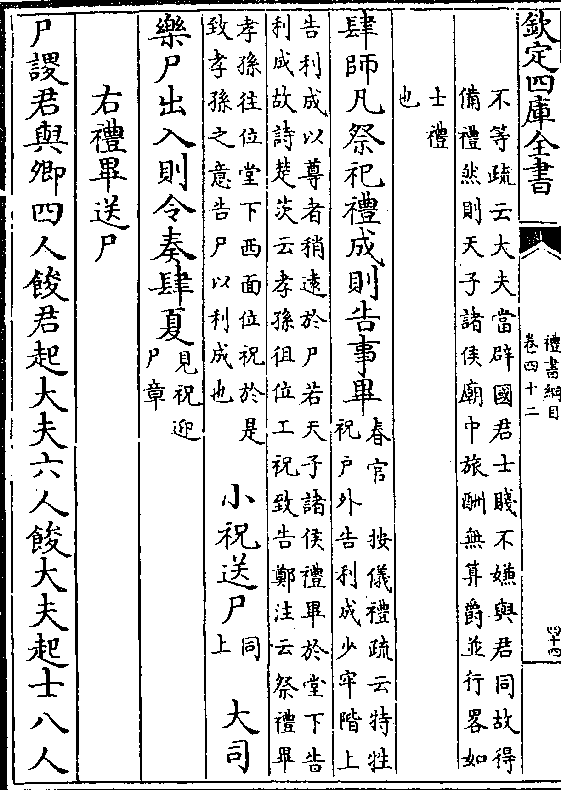 欽定四庫全書
禮書綱目
卷四十二
四十四
不等疏云大夫當辟國君士賤不嫌與君同故得
備禮然則天子諸侯廟中旅酬無算爵並行畧如
士禮
也
肆師凡祭祀禮成則告事畢
春官　按儀禮疏云特牲
祝戶外告利成少牢階上
告利成以尊者稍遠於尸若天子諸侯禮畢於堂下告
利成故詩楚茨云孝孫徂位工祝致告鄭注云祭禮畢
孝孫往位堂下西面位祝於是
致孝孫之意告尸以利成也
小祝送尸
同
上
大司
樂尸出入則令奏肆夏
見祝迎
尸章
右禮畢送尸
尸謖君與卿四人餕君起大夫六人餕大夫起士八人